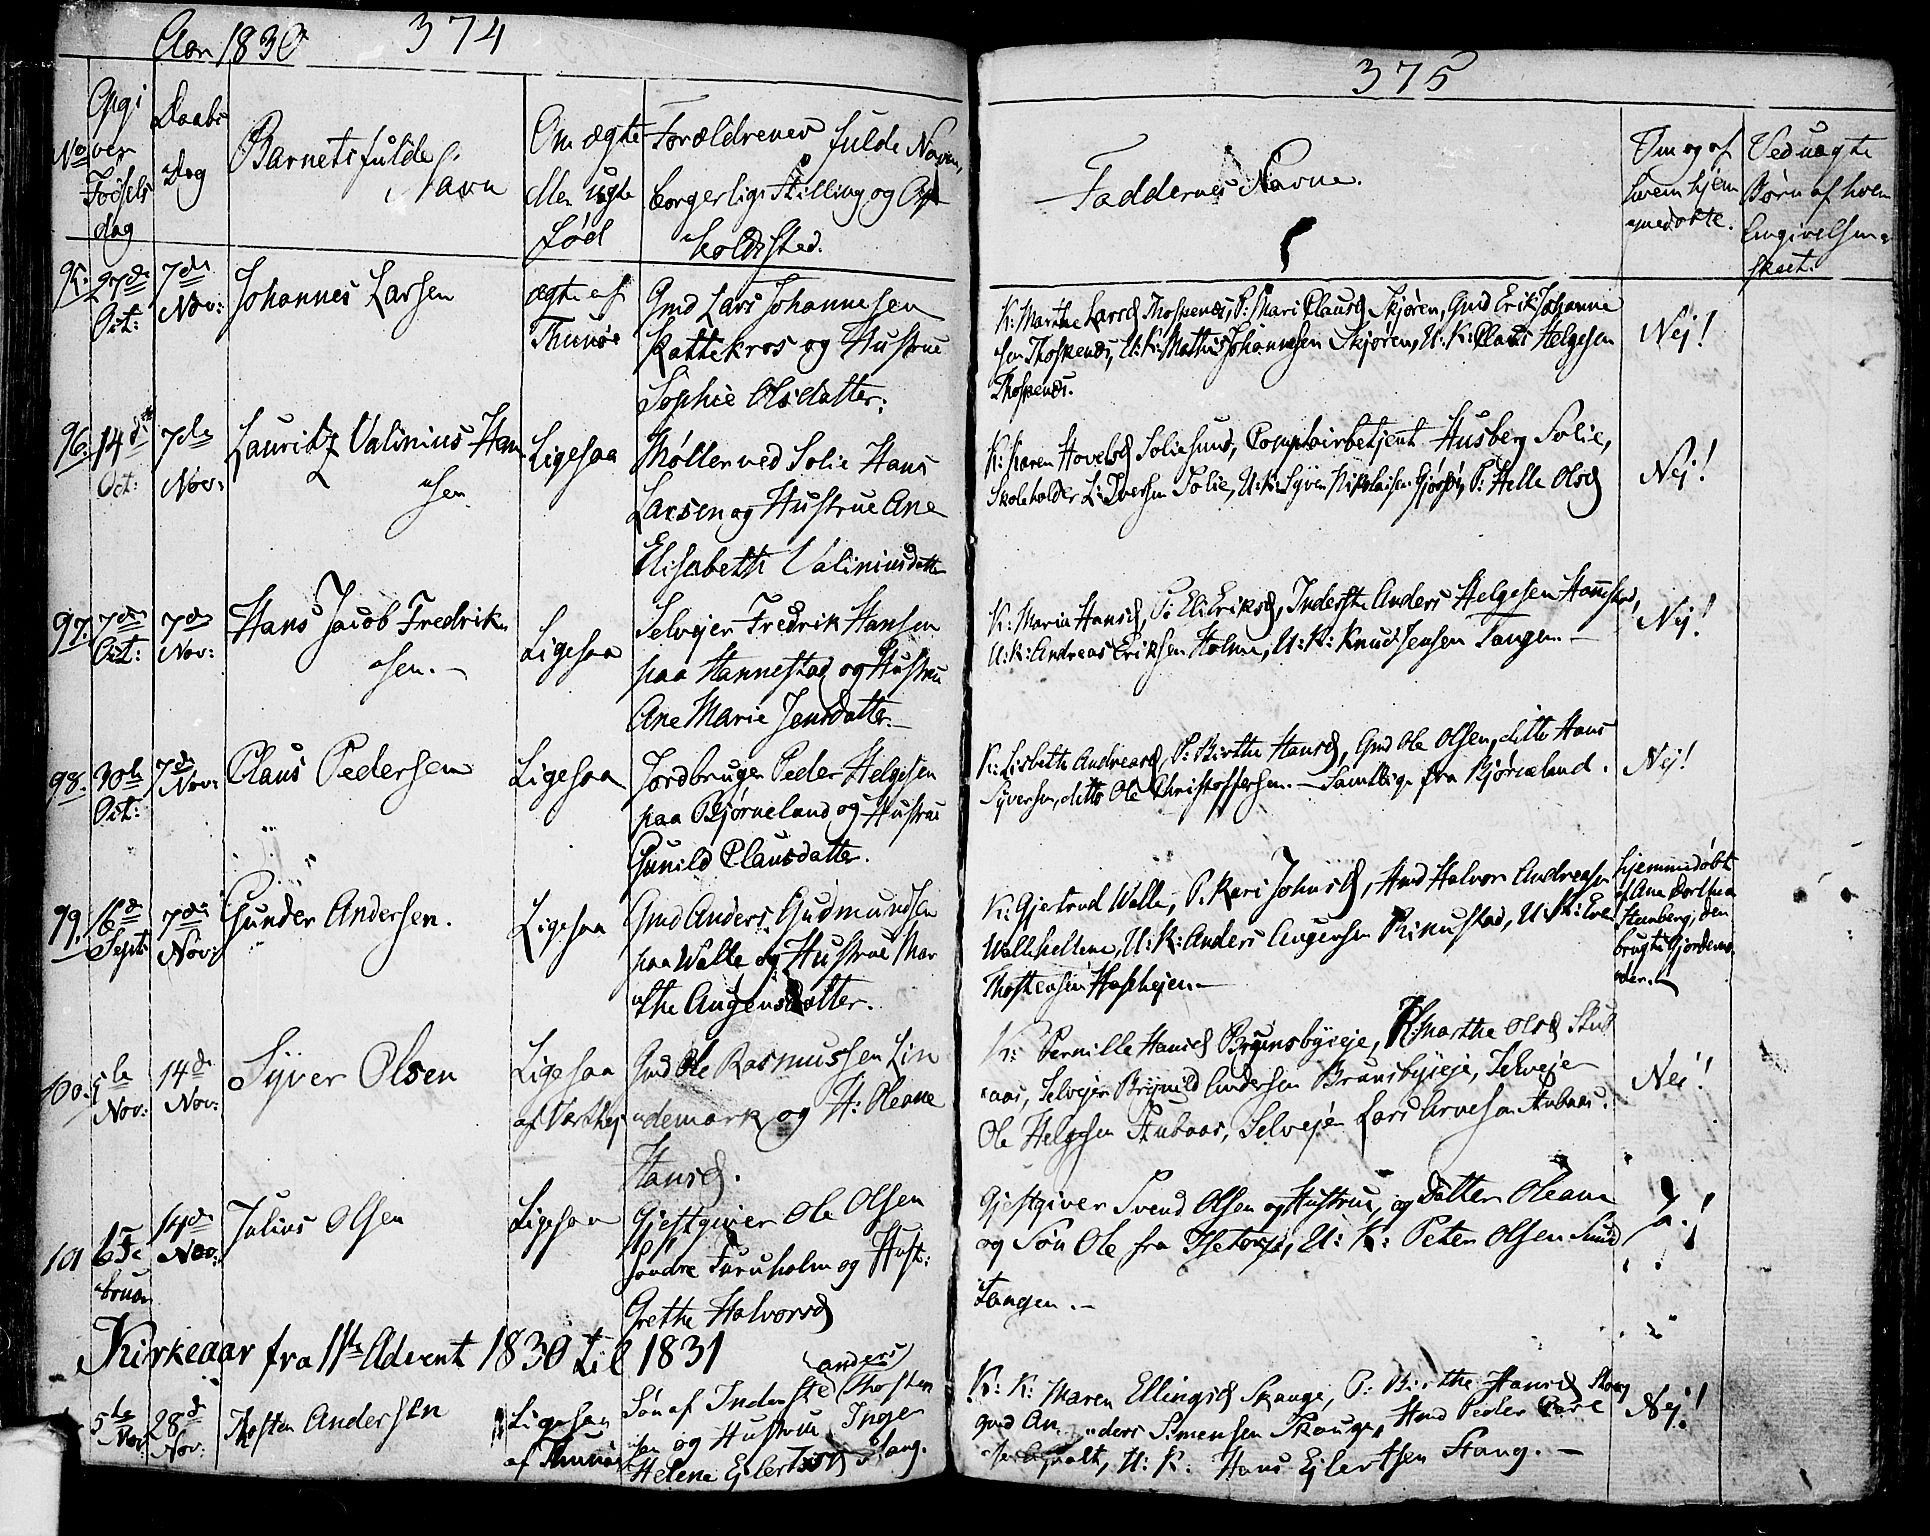 Aar 1830
374
No
Opgi
ven
Fødsels
dag
Daabs
Dag
Barnets fulde
Navn
Om ægte
eller uægte
født
Forældrenes fulde Navne,
borgerlige Stilling og Op-
holdssted.
95.
27de
Oct:
7de
Nov:
Johannes Larsen
ægte af
Thunøe
Gmd Lars Johannesen
Kattekros og Hustrue
Sophie Olsdatter.
96.
14de
Oct:
7de
Nov:
Lauritz Valinius Han
sen
Ligesaa
Møller ved Solie Hans
Larsen og Hustrue Ane
Elisabeth Valiniusdatter
97.
7de
Oct:
7de
Nov:
Hans Jacob Fredrik
sen.-
Ligesaa
Selvejer Fredrik Hansen
paa Hannestad og Hustru
Ane Marie Jensdatter.-
98.
30te
Oct:
7de
Nov:
Claus Pedersen
Ligesaa
Jordbruger Peder Helgesen
paa Bjørneland og Hustrue
Gunild Clausdatter.
99.
16de
Septb
7de
Nov:
Gunder Andersen.
Ligesaa
Gmd Anders Gudmundsen
paa Walle og Hustrue Mar
the Augensdatter.
100.
5te
Nov:
14de
Nov:
Syver Olsen
Ligesaa
Gmd Ole Rasmussen Lin
demark og H: Oleane
Hansd.
101
6 Fe
bruar
14de
Nov:
Julius Olsen
Ligesaa
Gjestgiver Ole Olsen
Søndre Furuholm og Hust:
Grethe Halvorsd
Kirkeaar fra 1ste Advent 1830 til 1831
5te
Nov:
28de
Nov:
Thosten Andersen
Ligesaa
af Thunøe
Søn af Inderste Anders Thosten
sen og Hustrue Inger
Helene Ejlertsd Stang.
375
Faddernes Navne.
Om og af
hvem hjem
medøbte.
Ved uægte
Børn af hvem
Angivelsen er
skeet.
K: Marthe Larsd Thospends, P: Mari Clausd Skjøren, Gmd Erik Johanne
sen Thospends, U: K: Mathis Johannesen Skjøren, U: K: Claus Helgesen
Thospends.
Nej!
K: Karen Hovelsd Soliesund, Comptoirbetjent Husberg Solie,
Skoleholder L: Iversen Solie, U: K: Syver Nikolaisen, P: Helle Olsd
Nej!
K: Maria Hansd, P: Eli Eriksd, Inderste Anders Helgesen Hannestad,
U: K: Andreas Eriksen Holme, U: K: Knud Jensen Tangen.-
Nej!
K: Lisbeth Andreasd, P: Birthe Hansd, Gmd Ole Olsen, ditto Hans
Syversen, ditto Ole Christoffersen.- Samtlige fra Bjørneland.
Nej!
K: Gjertrud Walle, P: Kari Johnsd, Gmd Halvor Andreasen
Wallehellene, U: K: Anders Augensen Rinustad, U: K: Even
Thostensen
hjemmedøbt
af Ane Dorthea
Stenberg, den
brugte Gjordemo
der.
K: Pernille Hansd Brunsbyeie, K: Marthe Olsd Stub
aas, Selvejer Brynild Andersen Brunsbyeie, Selvejer
Ole Helgesen Stubaas, Selvejer Lars Arnesen Stubaas.
Nej!
Gjestgiver Svend Olsen og Hustrue, og Datter Oleane
og Søn Ole fra Isetorp, U: K: Peter Olsen Sund
Tangen.-
K: K: Maren Ellingsd Skauge, P: Birthe Hansd
gmd Anders Simensen Skauge, Gmd Peder
U: K: Hans Ejlertsen Stang.-
Nej!